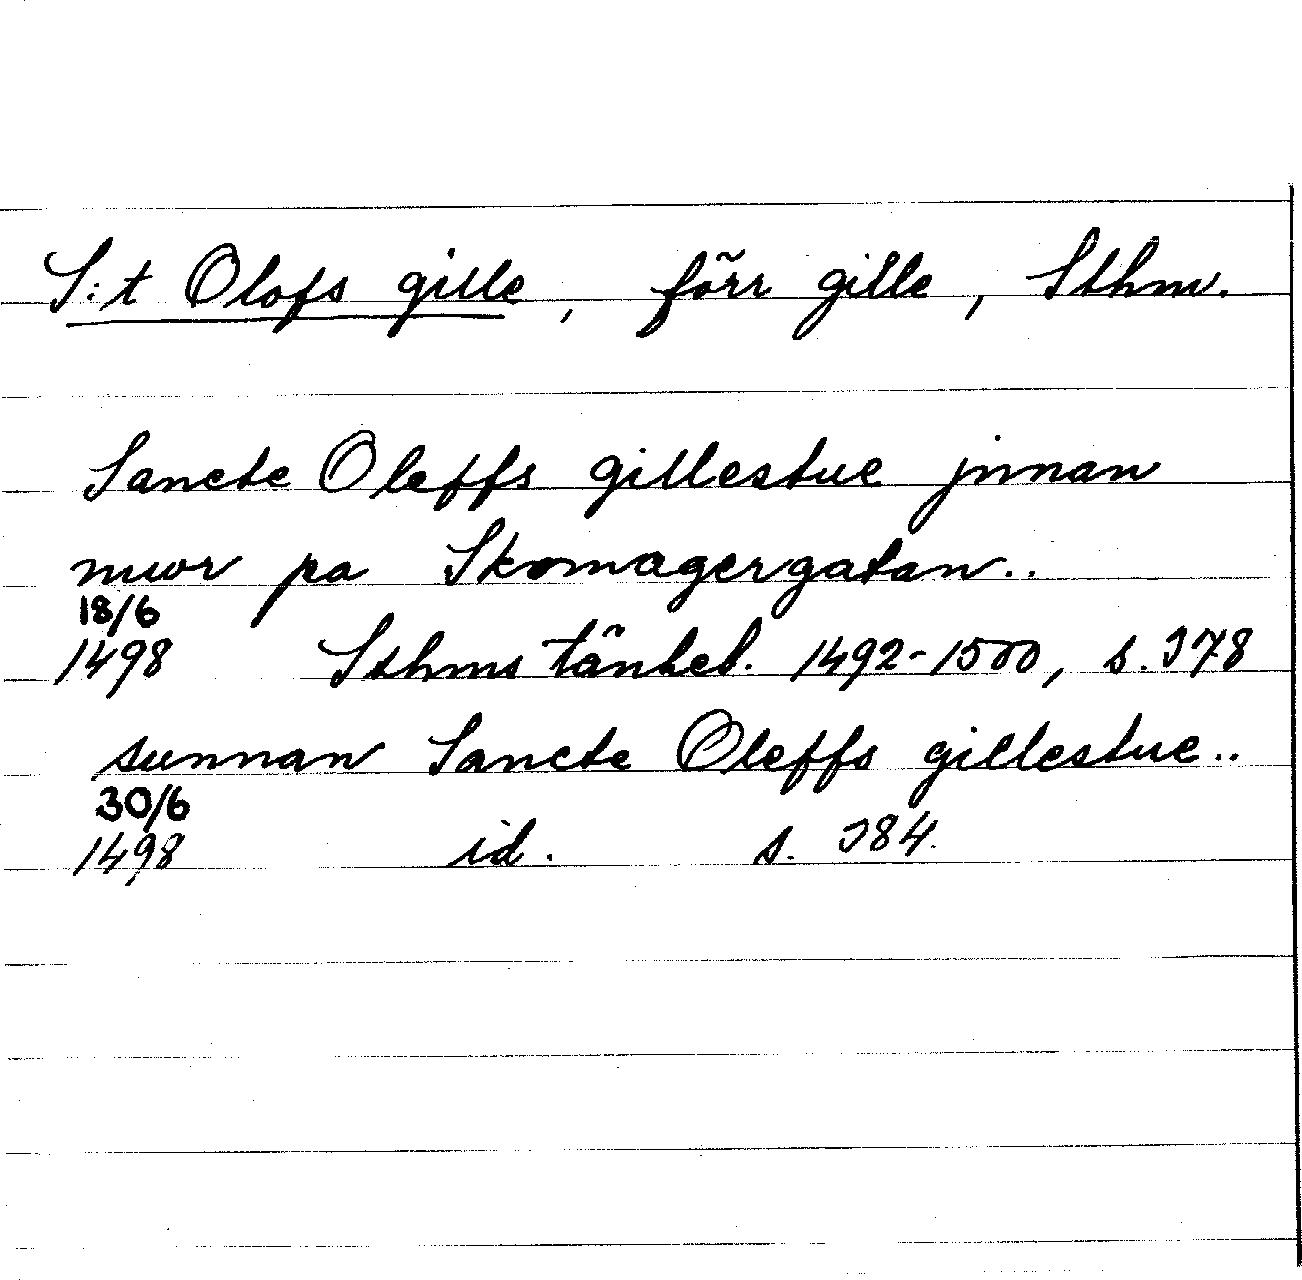 S:t Olofs gille, förr gille, Sthm.
Sancte Oleffs gillestue jnnan
muor pa Skomagergatan..
18/6
1498 Sthms tänkeb. 1492-1500, s. 378
sunnan Sancte Oleffs gillestue..
30/6
1498 id. s. 384.